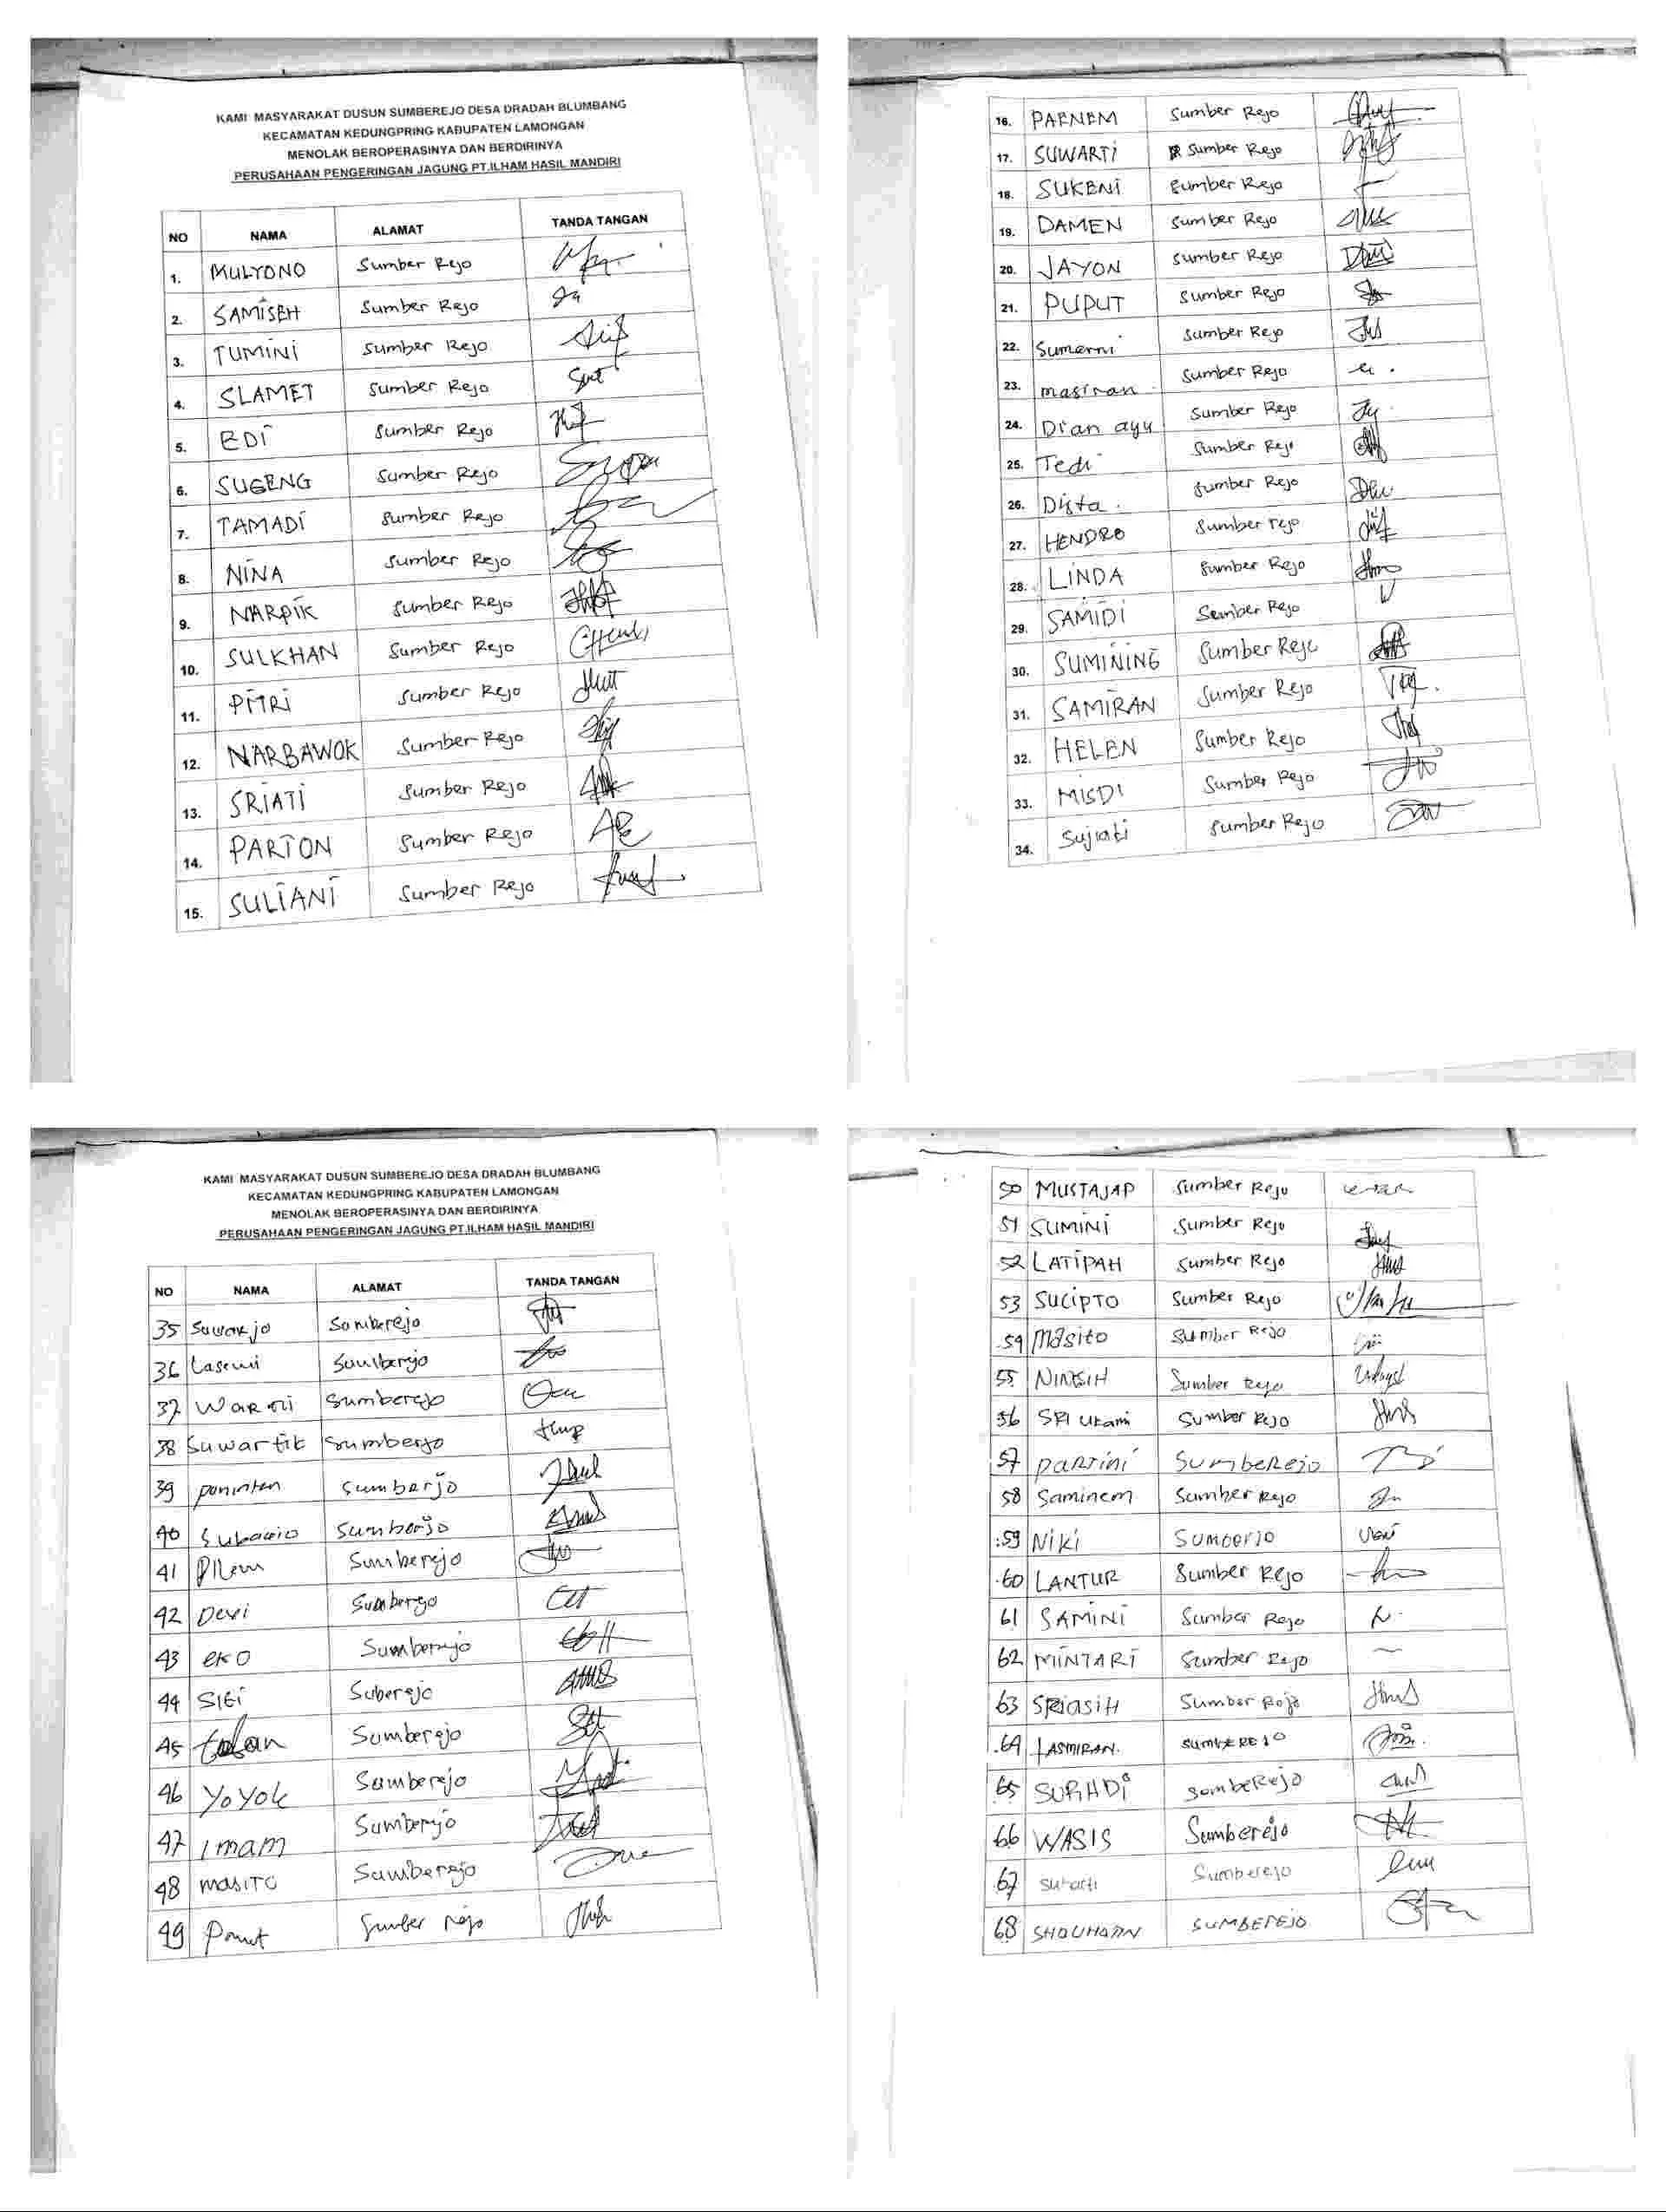 KAMI MASYARAKAT DUSUN SUMBEREJO DESA DRADAH BLUMBANG
KECAMATAN KEDUNGPRING KABUPATEN LAMONGAN
MENOLAK BEROPERASINYA DAN BERDIRINYA
PERUSAHAAN PENGERINGAN JAGUNG PT.ILHAM HASIL MANDIRI
NO NAMA ALAMAT TANDA TANGAN
1. MULYONO Sumber Rejo
2. SAMISEH Sumber Rejo
3. TUMINI Sumber Rejo
4. SLAMET Sumber Rejo
5. EDI Sumber Rejo
6. SUGENG Sumber Rejo
7. TAMADI Sumber Rejo
8. NINA Sumber Rejo
9. NARPIK Sumber Rejo
10. SULKHAN Sumber Rejo
11. PITRI Sumber Rejo
12. NARBAWOK Sumber Rejo
13. SRIATI Sumber Rejo
14. PARTON Sumber Rejo
15. SULIANI Sumber Rejo
16. PAENEM Sumber Rejo
17. SUWARTI Sumber Rejo
18. SUKENI Sumber Rejo
19. DAMEN Sumber Rejo
20. JAYON Sumber Rejo
21. PUPUT Sumber Rejo
22. Sumarni Sumber Rejo
23. masiran Sumber Rejo
24. Dian ayu Sumber Rejo
25. Tedi Sumber Rejo
26. Dista Sumber Rejo
27. HENDRO Sumber rejo
28. LINDA Sumber Rejo
29. SAMIDI Sumber Rejo
30. SUMINING Sumber Rejo
31. SAMIRAN Sumber Rejo
32. HELEN Sumber Rejo
33. MISDI Sumber Rejo
34. Sujiati Sumber Rejo
KAMI MASYARAKAT DUSUN SUMBEREJO DESA DRADAH BLUMBANG
KECAMATAN KEDUNGPRING KABUPATEN LAMONGAN
MENOLAK BEROPERASINYA DAN BERDIRINYA
PERUSAHAAN PENGERINGAN JAGUNG PT.ILHAM HASIL MANDIRI
NO NAMA ALAMAT TANDA TANGAN
35 Suwarjo Somberejo
36 Lasemi Sumberejo
37 Sumberejo
38 Suwartik Sumberjo
39 Sumberjo
40 Sumberjo
41 Sumberejo
42 Devi Sumberejo
43 eko Sumberejo
44 Siti Suberejo
45 Sumberejo
46 YoYok Sumberejo
47 imam Sumberejo
48 masito Sumberejo
49 Sumber rejo
50 MUSTAJAP Sumber Rejo
51 SUMINI Sumber Rejo
52 LATIPAH Sumber Rejo
53 SUCIPTO Sumber Rejo
54 Masito Sumber Rejo
55 NINGSIH Sumber Rejo
56 SRI Utami Sumber Rejo
57 PARTINI SumbeRejo
58 Saminem Sumber Rejo
59 NIKI Sumberjo
60 LANTUR Sumber Rejo
61 SAMINI Sumber Rejo
62 MINTARI Sumber Rejo
63 SRIASIH Sumber Rojo
64 TASMIRAN. SUMBEREJO
65 SURADI SombeRejo
66 WASIS Sumberejo
67 Sumberejo
68 SUMBEREJO